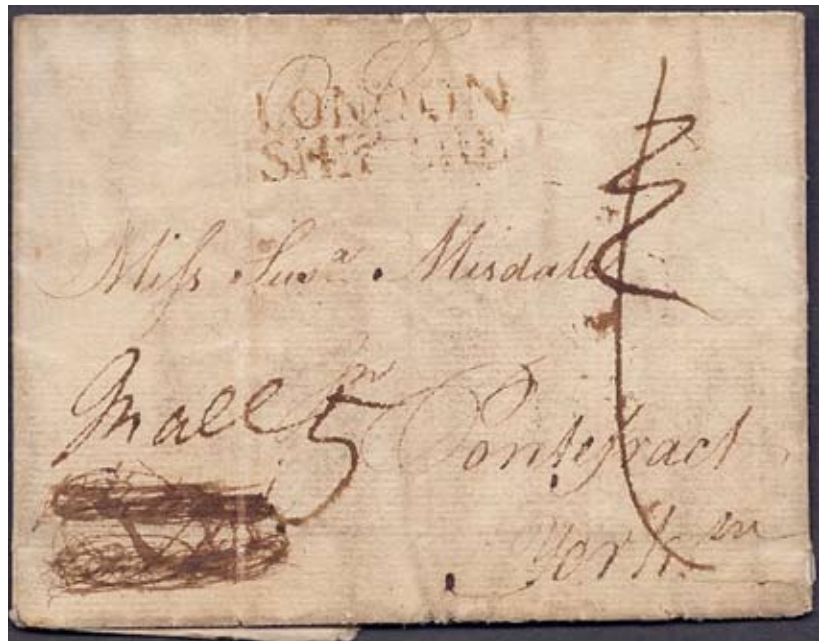 LONDON
SHIP LRE
Miſs Susa. Misdale
Mall 5
Pontefract
York